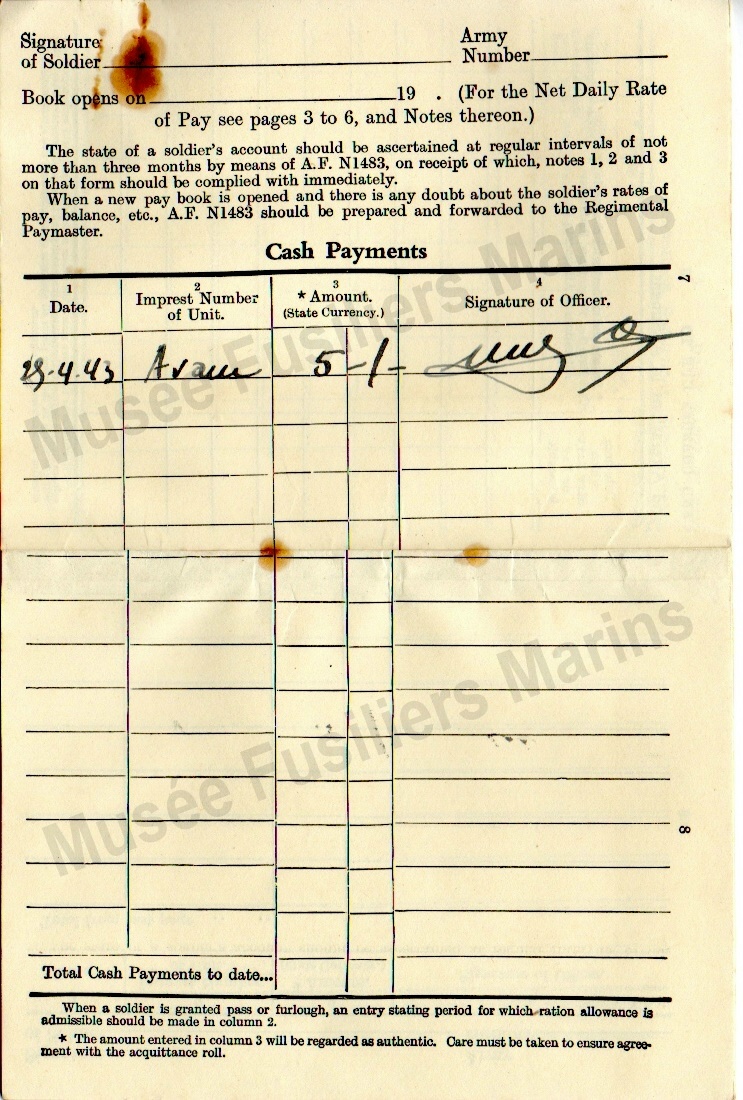 Signature
of Soldier
Army
Number
Book opens on 19 . (For the Net Daily Rate
of Pay see pages 3 to 6, and Notes thereon.)
The state of a soldier's account should be ascertained at regular intervals of not
more than three months by means of A.F. N1483, on receipt of which, notes 1, 2 and 3
on that form should be complied with immediately.
When a new pay book is opened and there is any doubt about the soldier's rates of
pay, balance, etc., A.F. N1483 should be prepared and forwarded to the Regimental
Paymaster.
Cash Payments
7
1
Date.
2
Imprest Number
of Unit.
3
* Amount.
(State Currency.)
4
Signature of Officer.
4.43 5 -/-
Musée Fusiliers Marins
Musée Fusiliers Marins
8
Total Cash Payments to date...
When a soldier is granted pass or furlough, an entry stating period for which ration allowance is
admissible should be made in column 2.
* The amount entered in column 3 will be regarded as authentic. Care must be taken to ensure agree-
ment with the acquittance roll.